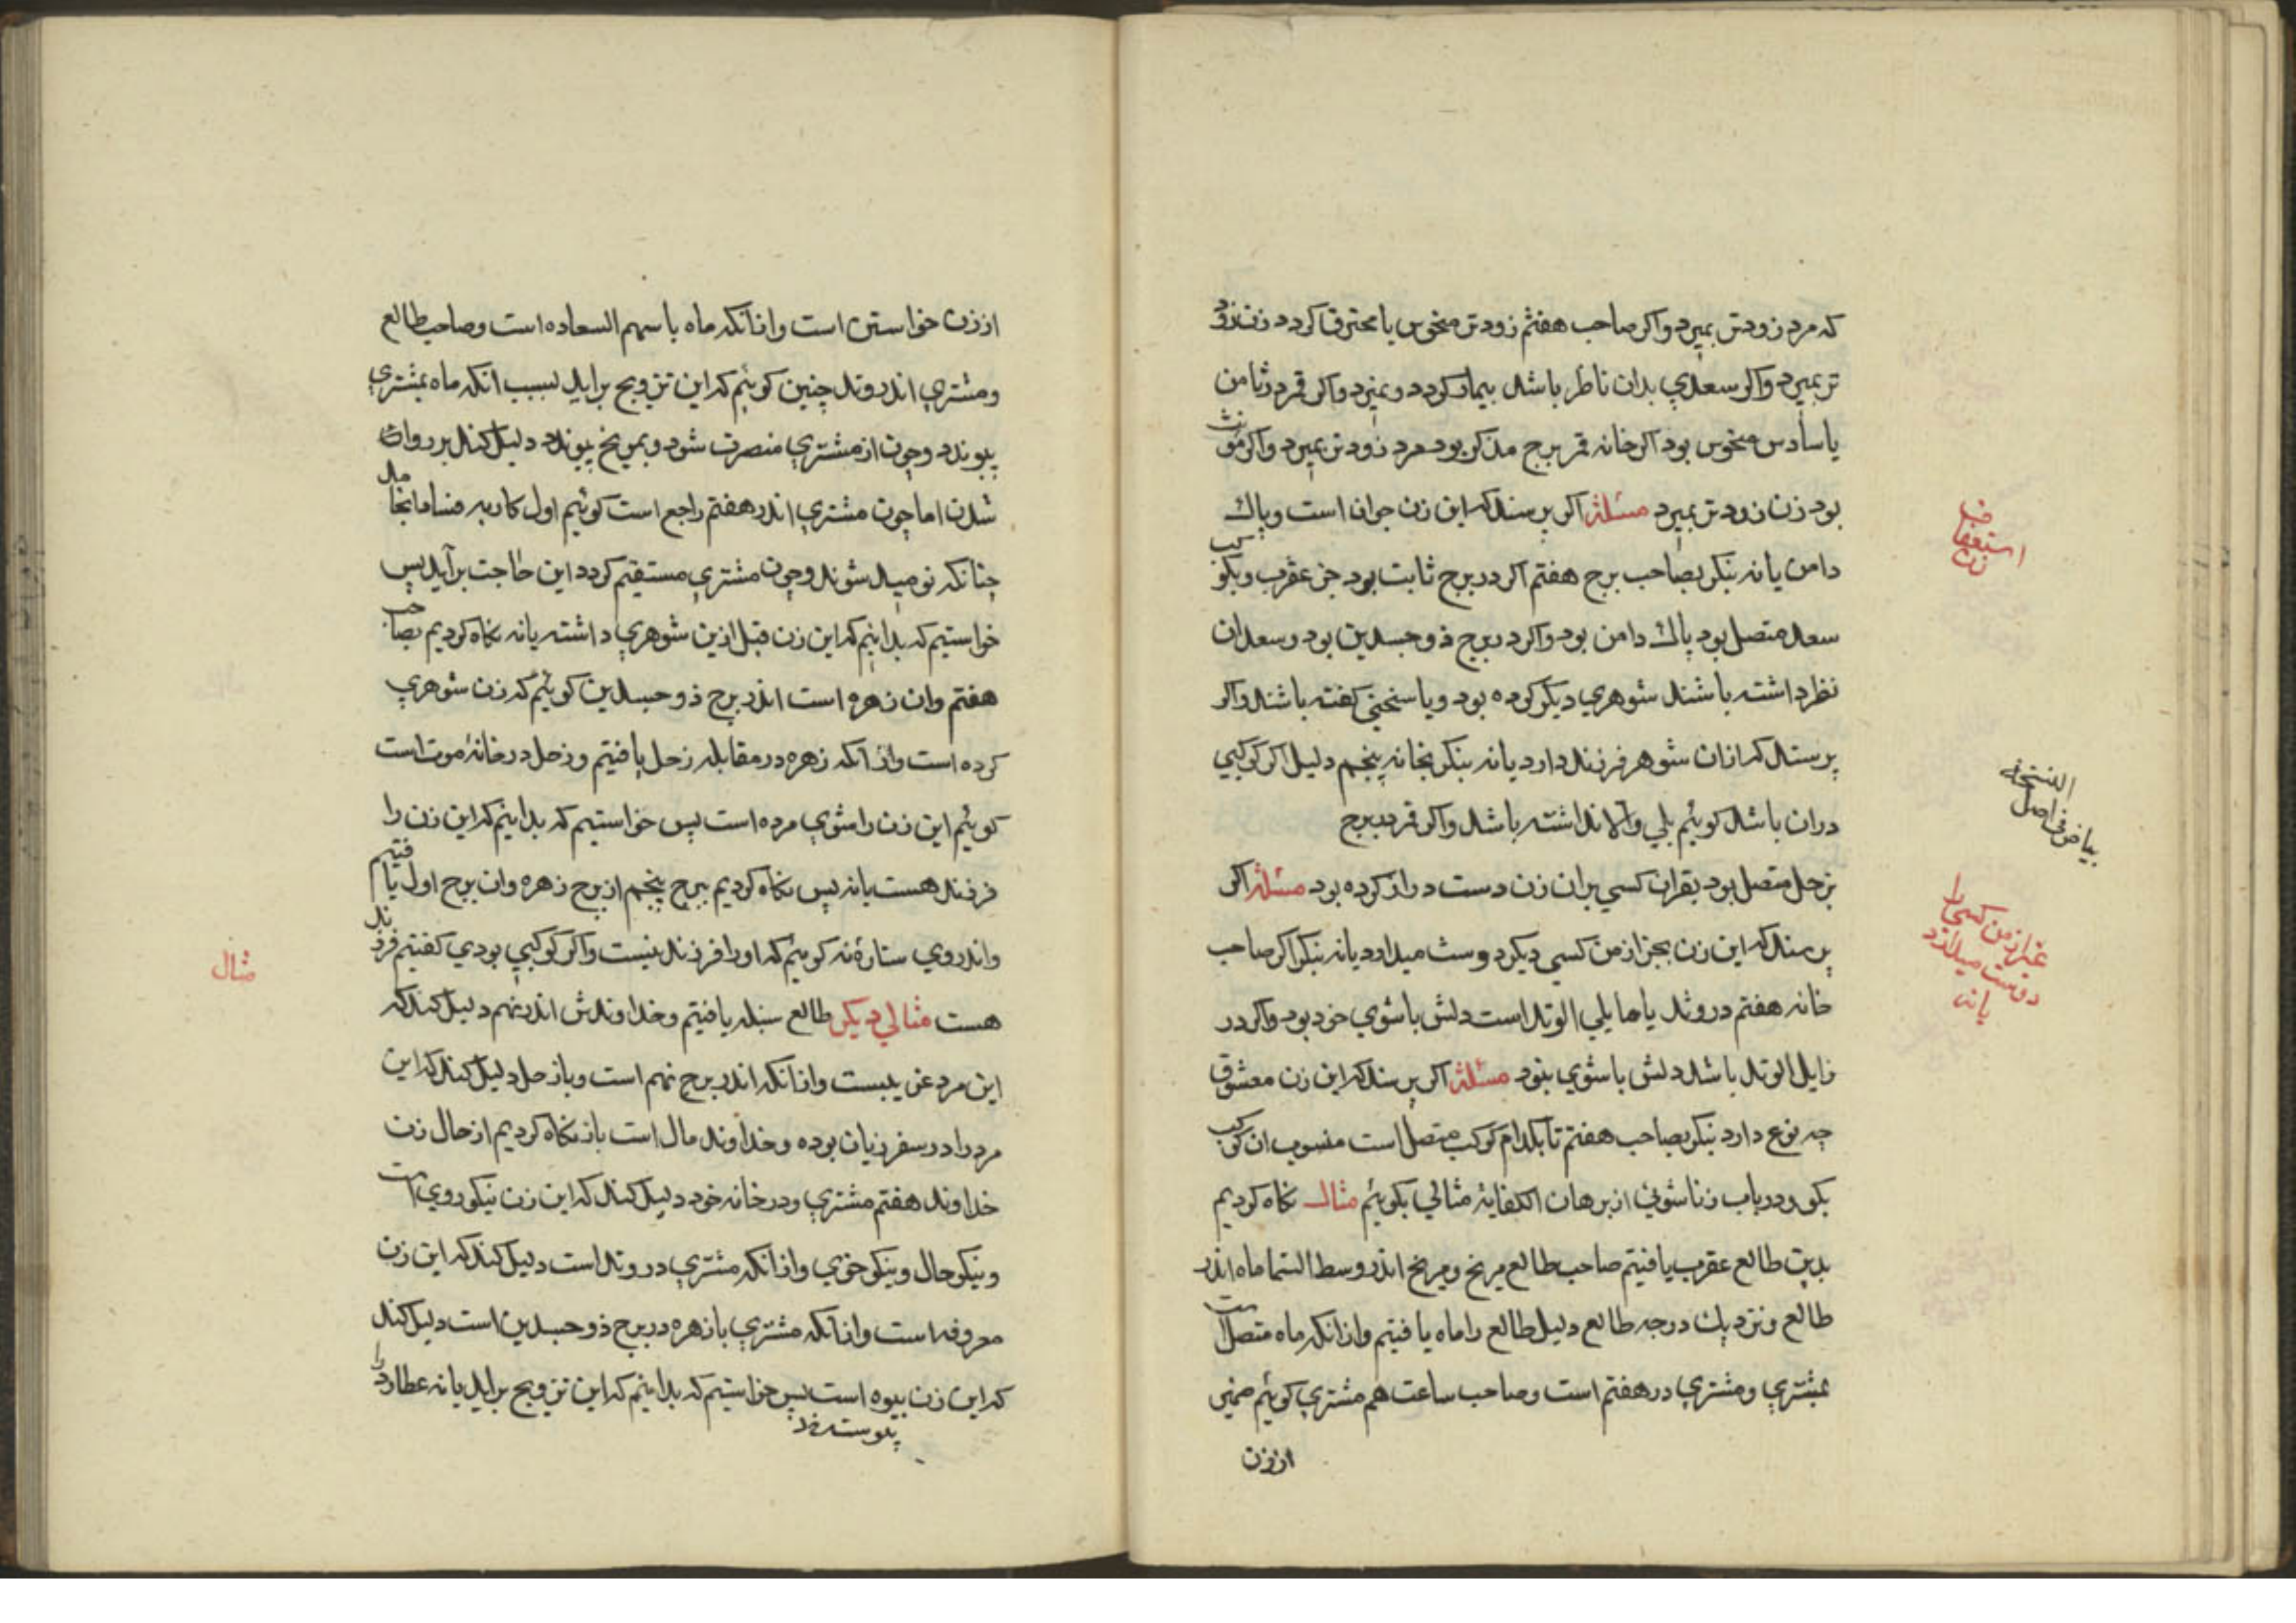 که مرد زودتر بمیرد واکر صاحب هفتم زودتر منحوس یا محترق کردد زن زود
تر بمیرد واکر سعدی بدان ناظر باشد بیمار کردد ونمیرد واکر قمر در ثامن
یا سادس منحوس بود اکر خانه قمر برج مذکر بود مرد زودتر بمیرد واکر مؤنث
بود زن زودتر بمیرد مسئلة اکر پرسند که این زن جوان است وپاك
دامن یا نه بنکر بصاحب برج هفتم اکر در برج ثابت بود جز عقرب وبکوکب
سعد متصل بود پاك دامن بود واکر در برج ذوجسدین بود وسعدان
نظر داشته باشند شوهری دیکر کرده بود ویا سخنی کفته باشند واکر
پرستد که از ان شوهر فرزند دارد یا نه بنکر بخانه پنجم دلیل اکر کوکبی
در ان باشد کوئیم بلی والا نداشته باشد واکر قمر ببرج
بزحل متصل بود بقران کسی بران زن دست دراز کرده بود مسئلة اکر
پرسند که این زن بجز از من کسی دیکر دوست میدارد یا نه بنکر اکر صاحب
خانه هفتم در وتد یا مایلی الوتد است دلش با شوی خود بود واکر در
زایل الوتد باشد دلش با شوی نبود مسئلة اکر پرسند که این زن معشوق
چه نوع دارد بنکر بصاحب هفتم تا بکدام کوکب متصل است منسوب ان کوکب
بکو ودر باب زناشوئی از برهان الکفایة مثالی بکوئیم مثال نکاه کردیم
بدین طالع عقرب یافتیم صاحب طالع مریخ ومریخ اندر وسط السّما ماه اندر
طالع ونزدیك درجه طالع دلیل طالع را ماه یافتیم واز انکه ماه متصل است
بمشتری ومشتری در هفتم است وصاحب ساعت هم مشتری کوئیم ضمیر
از زن
استعفاف
زن
النسخة
بیاض فی اصل
غیر از من کسی را
دوست میدارد
یا نه
از زن خواستن است واز انکه ماه با سهم السعاده است وصاحب طالع
ومشتری اندر وتد چنین کوئیم که این تزویج براید لسبب انکه ماه بمشتری
پیوندد وچون از مشتری منصرف شود وبمریخ پیوندد دلیل کند بر روان
شدن اما چون مشتری اندر هفتم راجع است کوئیم اول کار به فساد انجامد
چنانکه نومید شوند وچون مشتری مستقیم کردد این حاجت برآید پس
خواستیم که بدانیم که این زن قبل ازین شوهری داشته یا نه نکاه کردیم بصاحب
هفتم وان زهره است اندر برج ذوجسدین کوئیم که زن شوهری
کرده است واز آنکه زهره در مقابله زحل یافتیم وزحل در خانهٔ موت است
کوئیم این زن را شوی مرده است پس خواستیم که بدانیم که این زن را
فرزند هست یا نه پس نکاه کردیم ببرج پنجم از برج زهره وان برج اول یافتیم
واندر وی ستارهٔ نه کوئیم که او را فرزند نیست واکر کوکبی بودی کفتیم فرزند
هست مثالی دیکر طالع سنبله یافتیم وخداوندش اندر نهم دلیل کند که
این مرد غریبست واز انکه اندر برج نهم است وباز حل دلیل کند که این
مرد را در سفر زیان بوده وخداوند مال است باز نکاه کردیم از حال زن
خداوند هفتم مشتری ودر خانه خود دلیل کند که این زن نیکو روی است
ونیکو حال ونیکو خوی واز انکه مشتری در وتد است دلیل کند که این زن
معروفه است واز انکه مشتری با زهره در برج ذوجسدین است دلیل کند
که این زن بیوه است پس خواستیم که بدانیم که این تزویج براید یا نه عطارد را
پیوسته
مثال